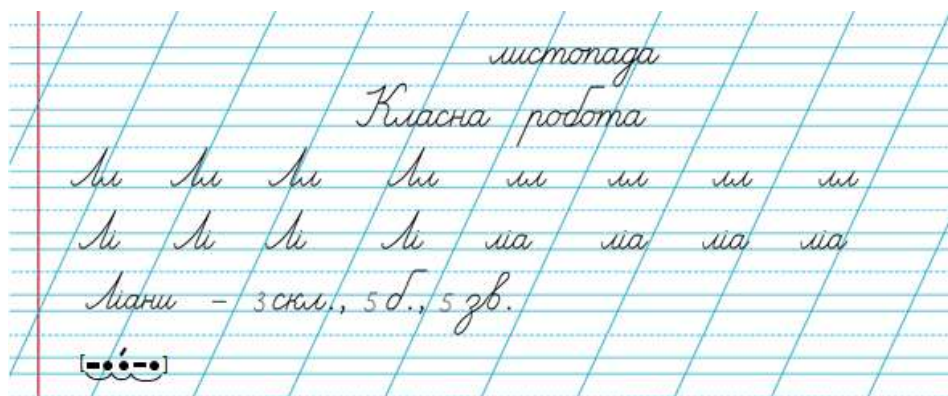 листопада
Класна робота
Лл Лл Лл Лл лл лл лл лл
Лі Лі Лі Лі ліа ліа ліа ліа
Ліани - 3 скл., 5 б., 5 зв.